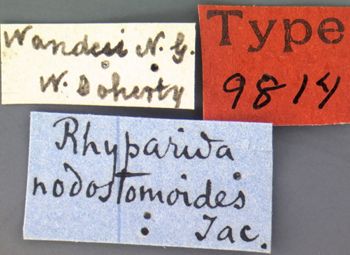 Wandesi N.G.
W. Doherty
Type
9814
Rhyparida
nodostomoides
Jac.